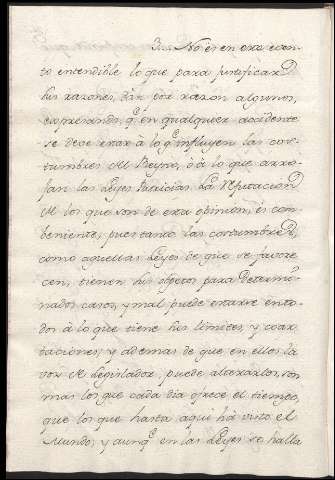 3... No es en este even-
to entendible lo que para justificar
sus razones, dàn por razon algunos,
expresando, q.e en qualquier accidente
se deve estàr à lo q.e influyen las cos-
tumbres del Reyno, ò à lo que arro-
jan las Leyes Patricias. La reputacion
de los que son de esta opinion, es con-
beniente, pues tanto las costumbres,
como aquellas Leyes de que se favore
cen, tienen sus objetos para determi-
nados casos, y mal puede estarse en to-
dos à lo que tiene sus limites, y coar-
taciones; y ademas de que en ellos la
vòz de Legislador, puede alterarlos, son
mas los que cada dia ofrece el tiempo,
que los que hasta aqui hà visto el
Mundo; y aunq.e en las Leyes se halla